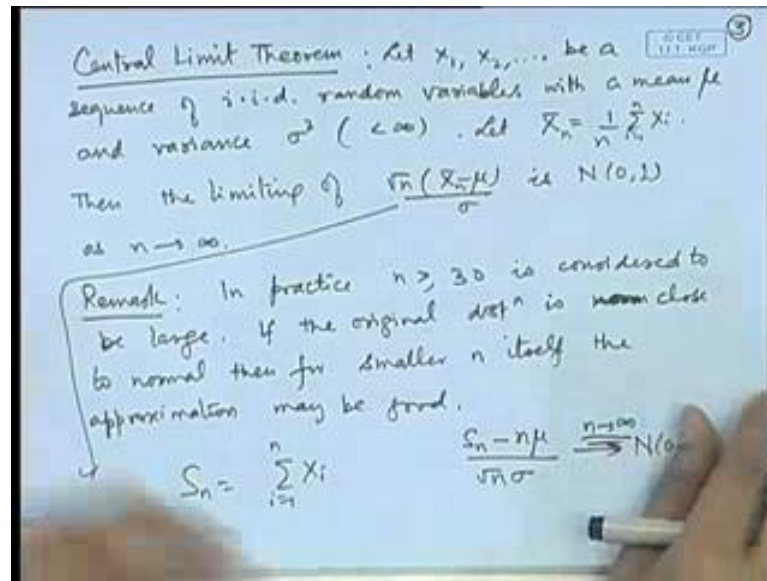 ③
© CET
I.I.T. KGP
Central Limit Theorem : Let X₁, X₂, .... be a
sequence of i.i.d. random variables with a mean μ
and variance σ² (<∞). Let X̄ₙ = 1/n Σᵢ₌₁ⁿ Xᵢ.
Then the limiting of √n(X̄ₙ-μ)/σ is N(0,1)
as n→∞.
Remark: In practice n ≥ 30 is considered to
be large. If the original distⁿ is close
to normal then for smaller n itself the
approximation may be good.
Sₙ = Σᵢ₌₁ⁿ Xᵢ (Sₙ-nμ)/(√nσ) n→∞ → N(0,